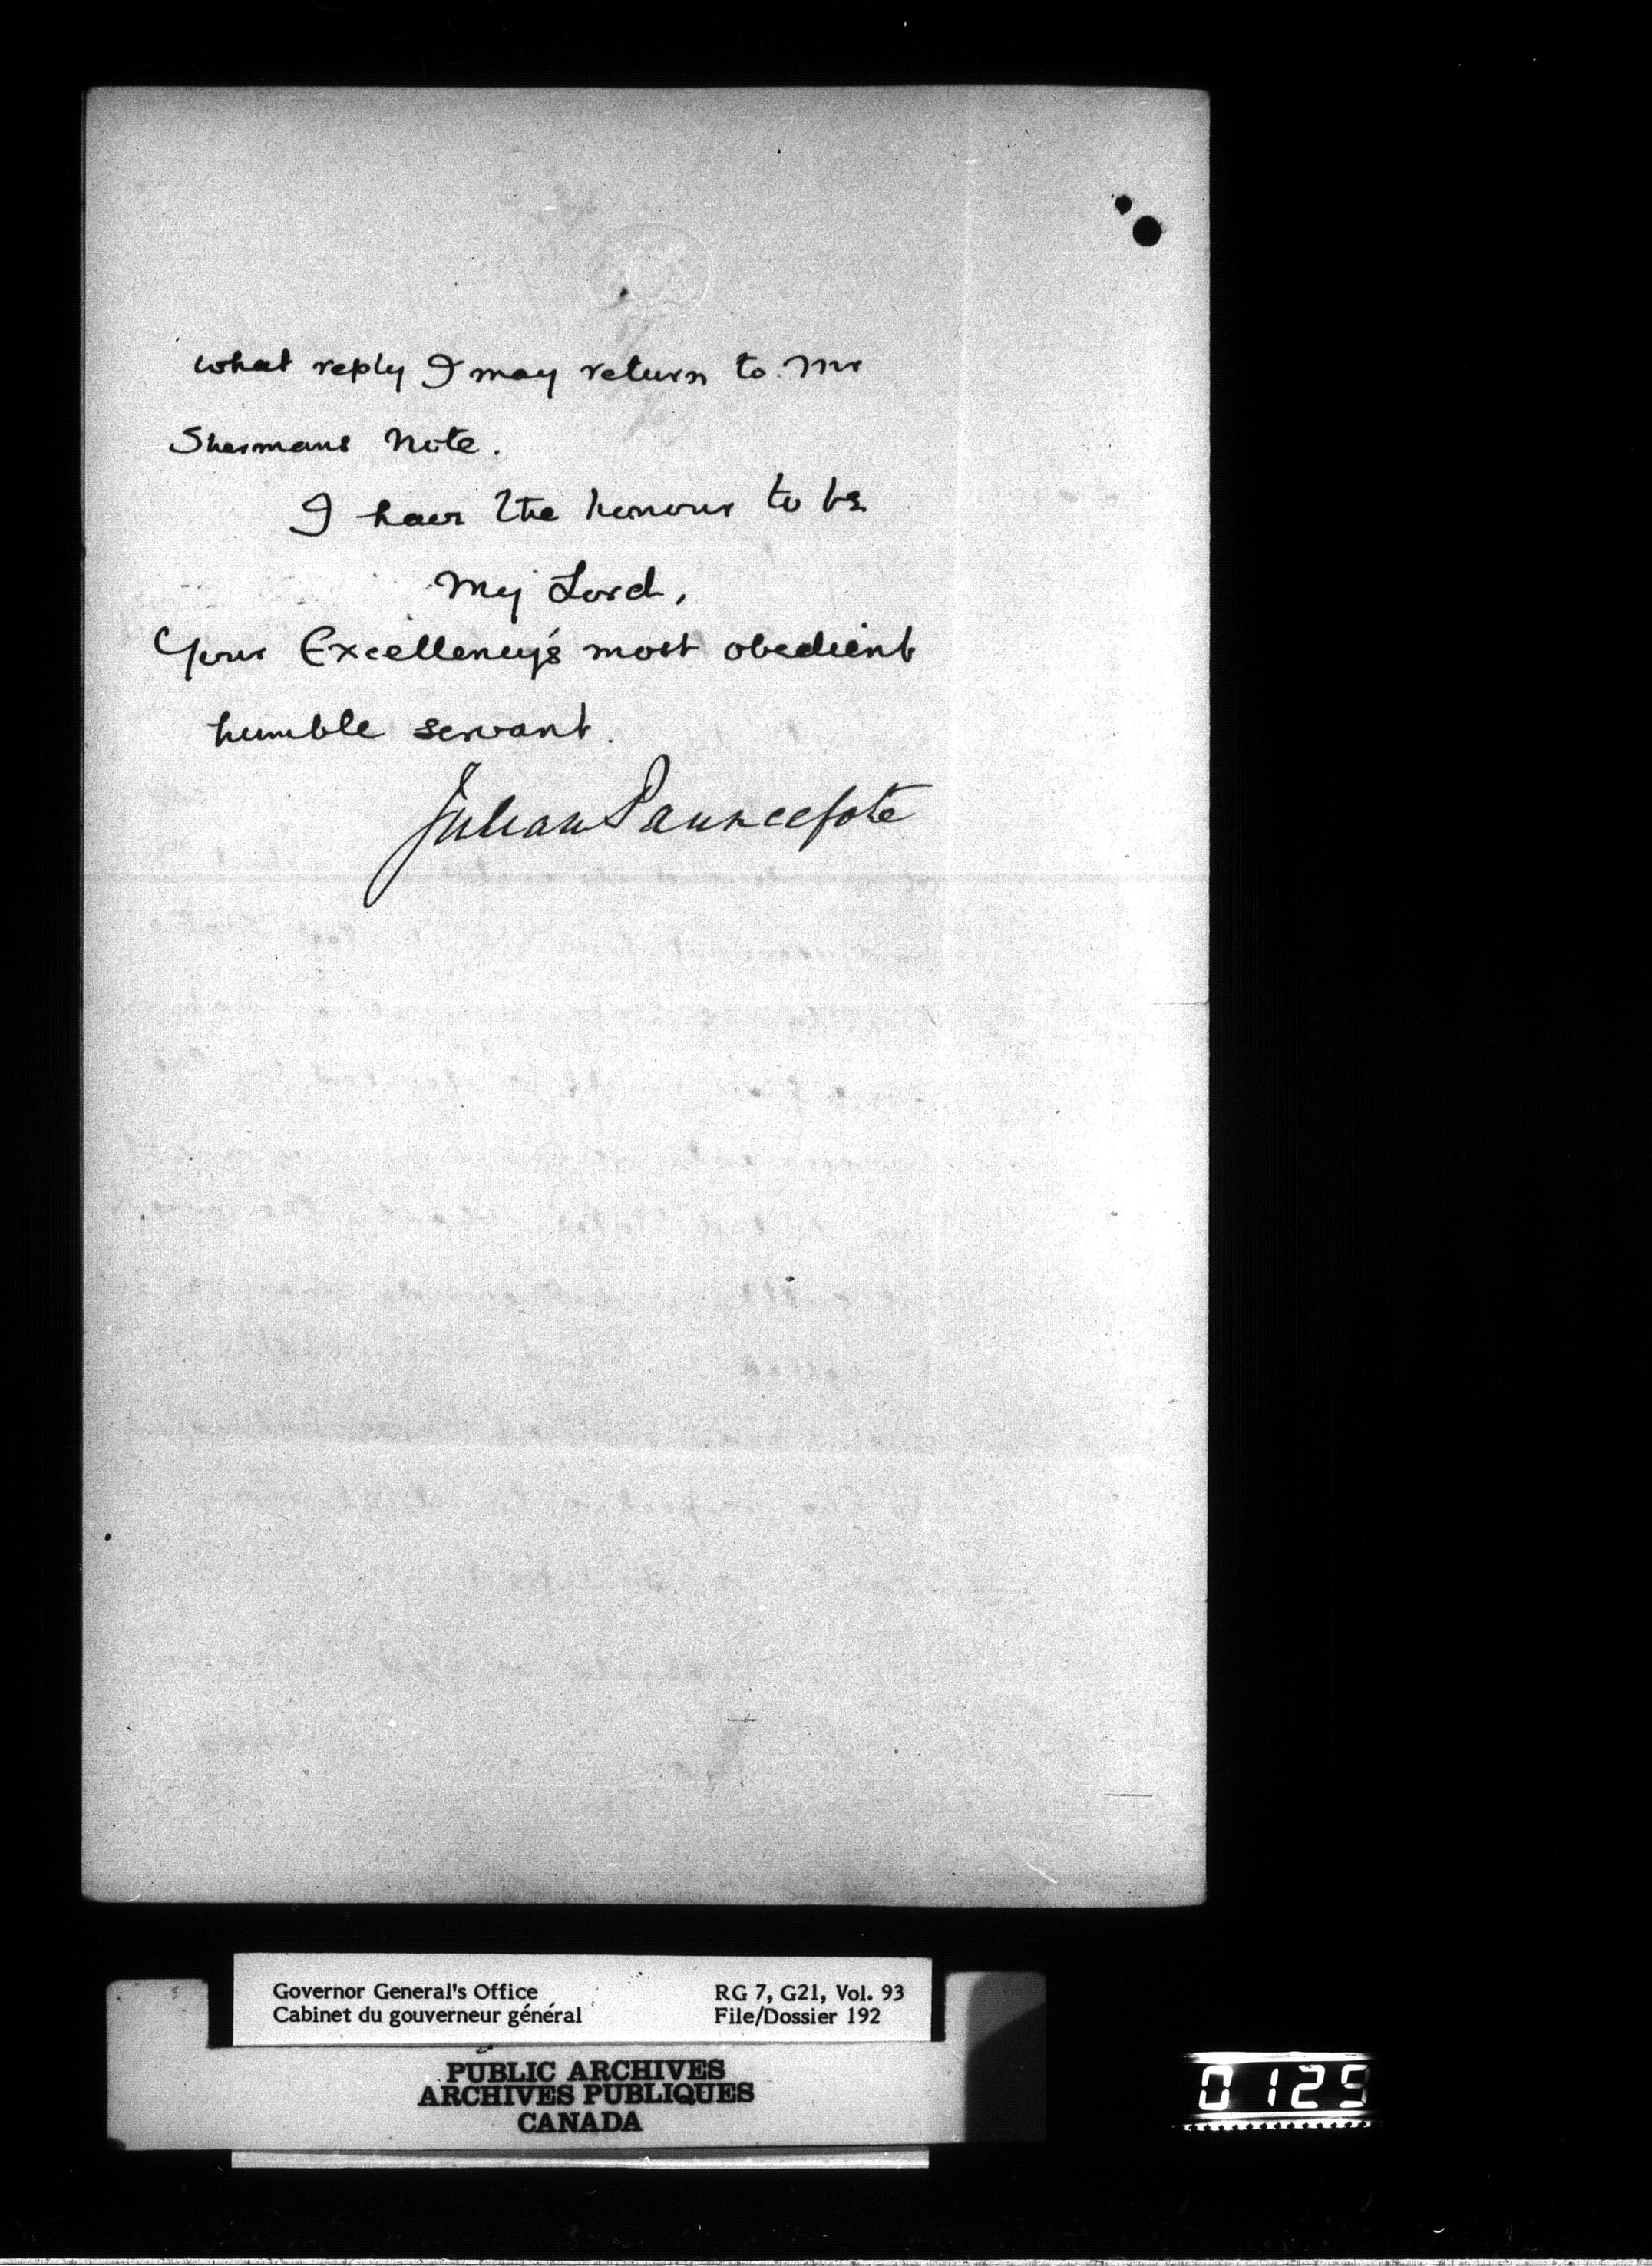 what reply I may return to Mr
Shermans Note.
I have the honour to be
My Lord,
Your Excellency's most obedient
humble servant.
Julian Pauncefote
Governor General's Office
Cabinet du gouverneur général
RG 7, G21, Vol. 93
File/Dossier 192
PUBLIC ARCHIVES
ARCHIVES PUBLIQUES
CANADA
0125